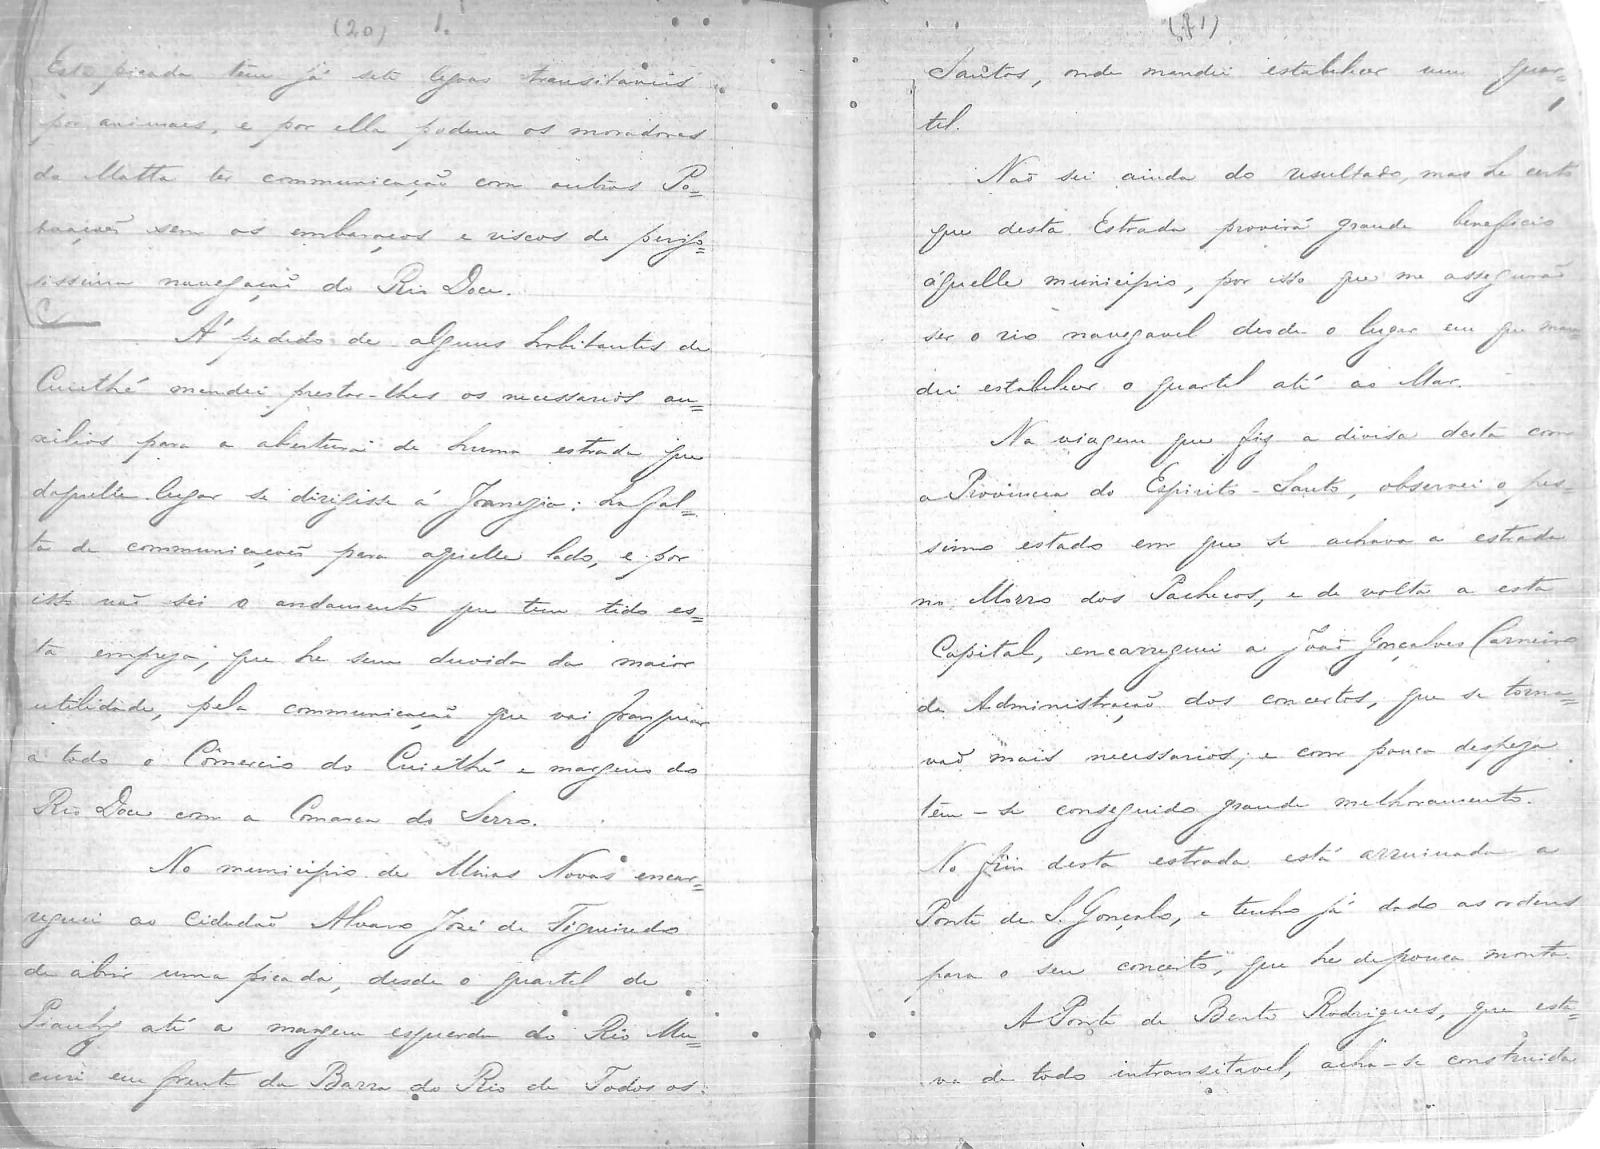 (20) 1.
Esta picada tem já sete legoas transitaveis
por animaes, e por ella podem os moradores
da Matta ter communicação com outras Po=
voações sem os embaraços e riscos de perigo=
sissima navegação do Rio Doce.
A' pedido de alguns habitantes de
Cuiethé mandei prestar-lhes os necessarios au=
xilios para a abertura de huma estrada que
daquelle lugar se dirigisse á Joanezia: ha fal=
ta de communicação para aquelle lado, e por
isso não sei o andamento que tem tido es=
ta empreza, que he sem duvida da maior
utilidade, pela communicação que vai franquear
a todo o Cômercio do Cuiethé e margens do
Rio Doce com a Comarca do Serro.
No municipio de Minas Novas encar=
reguei ao Cidadão Alvaro José de Figueiredo
de abrir uma picada, desde o quartel de
Piauhy até a margem esquerda do Rio Mu=
curi em frente da Barra do Rio de Todos os.
(21)
Santos, onde mandei estabelecer um quar=
tel.
Não sei ainda do resultado, mas he certo
que desta Estrada provirá grande beneficio
áquelle municipio, por isso que me assegurão
ser o rio navegavel desde o lugar em que man=
dei estabelecer o quartel até ao Mar.
Na viagem que fiz a divisa desta com
a Provincia do Espirito-Santo, observei o pes=
simo estado em que se achava a estrada
no Morro dos Pachecos, e de volta a esta
Capital, encarreguei a João Gonçalves Carneiro
da Administração dos concertos, que se torna=
vão mais necessarios; e com pouca despeza
têm-se conseguido grande melhoramento.
No fim desta estrada está arruinada a
Ponte de S. Gonçalo, e tenho já dado as ordens
para o seu concerto, que he de pouca monta.
A Ponte de Bento Rodrigues, que esta=
va de todo intransitavel, acha-se construida